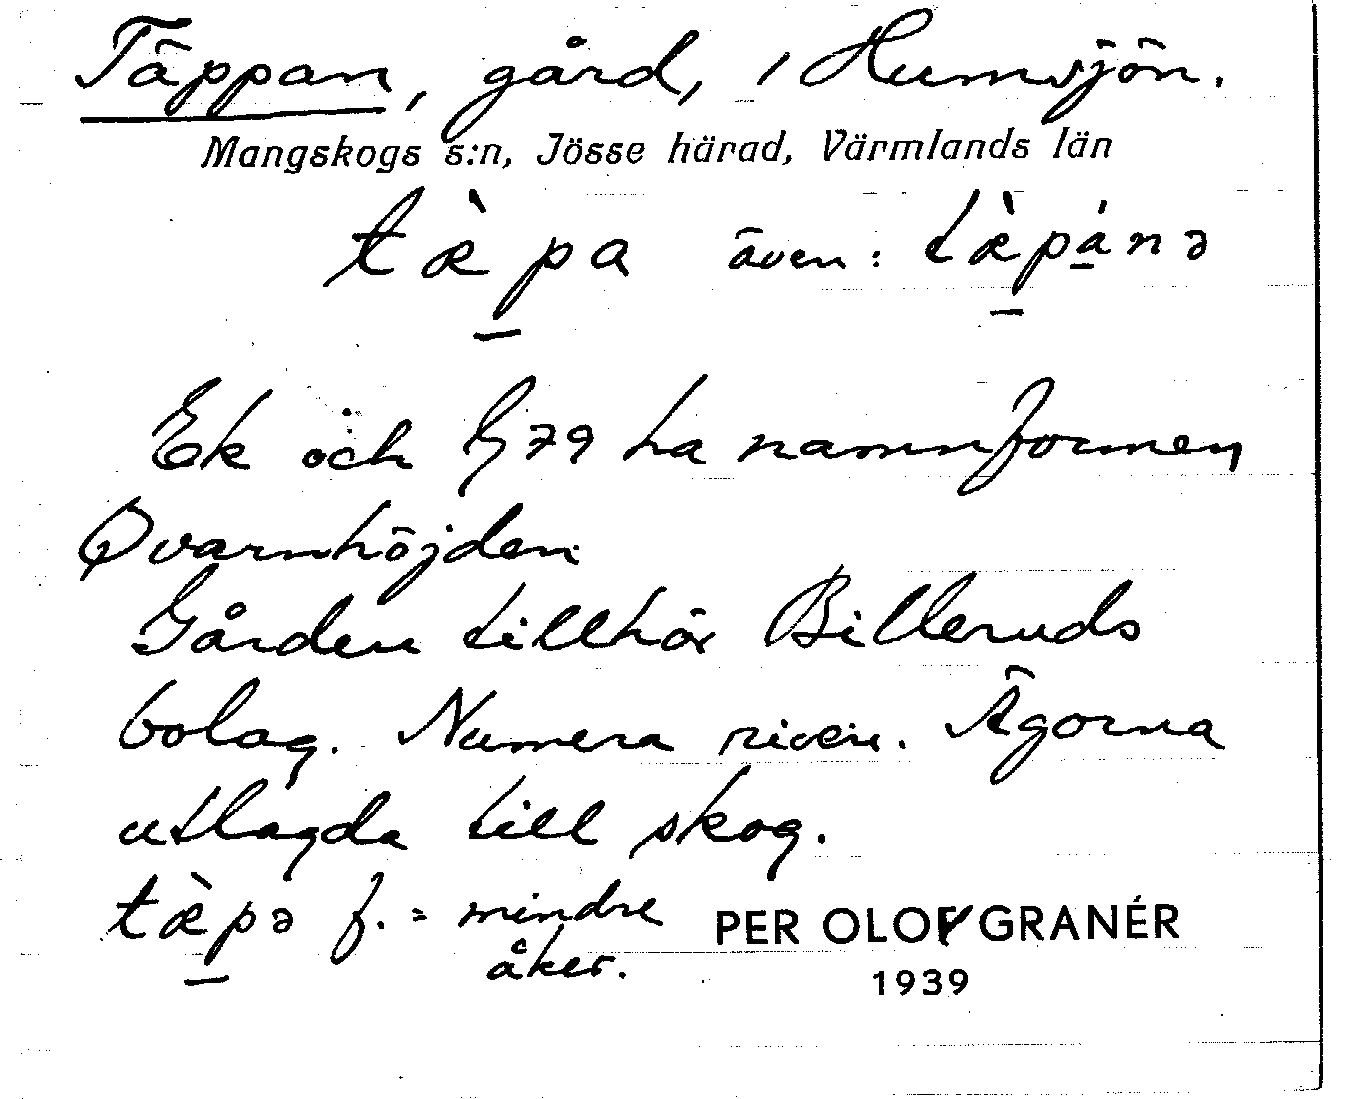 Täppan, gård, i Humsjön.
Mangskogs s:n, Jösse härad, Värmlands län
tæ̀pa även: tæ̀pánə
Ek och G79 ha namnformen
Qvarnhöjden
Gården tillhör Billeruds
bolag. Numera riven. Ägorna
utlagda till skog.
tæ̀pə f. = mindre
åker.
PER OLOF GRANÉR
1939